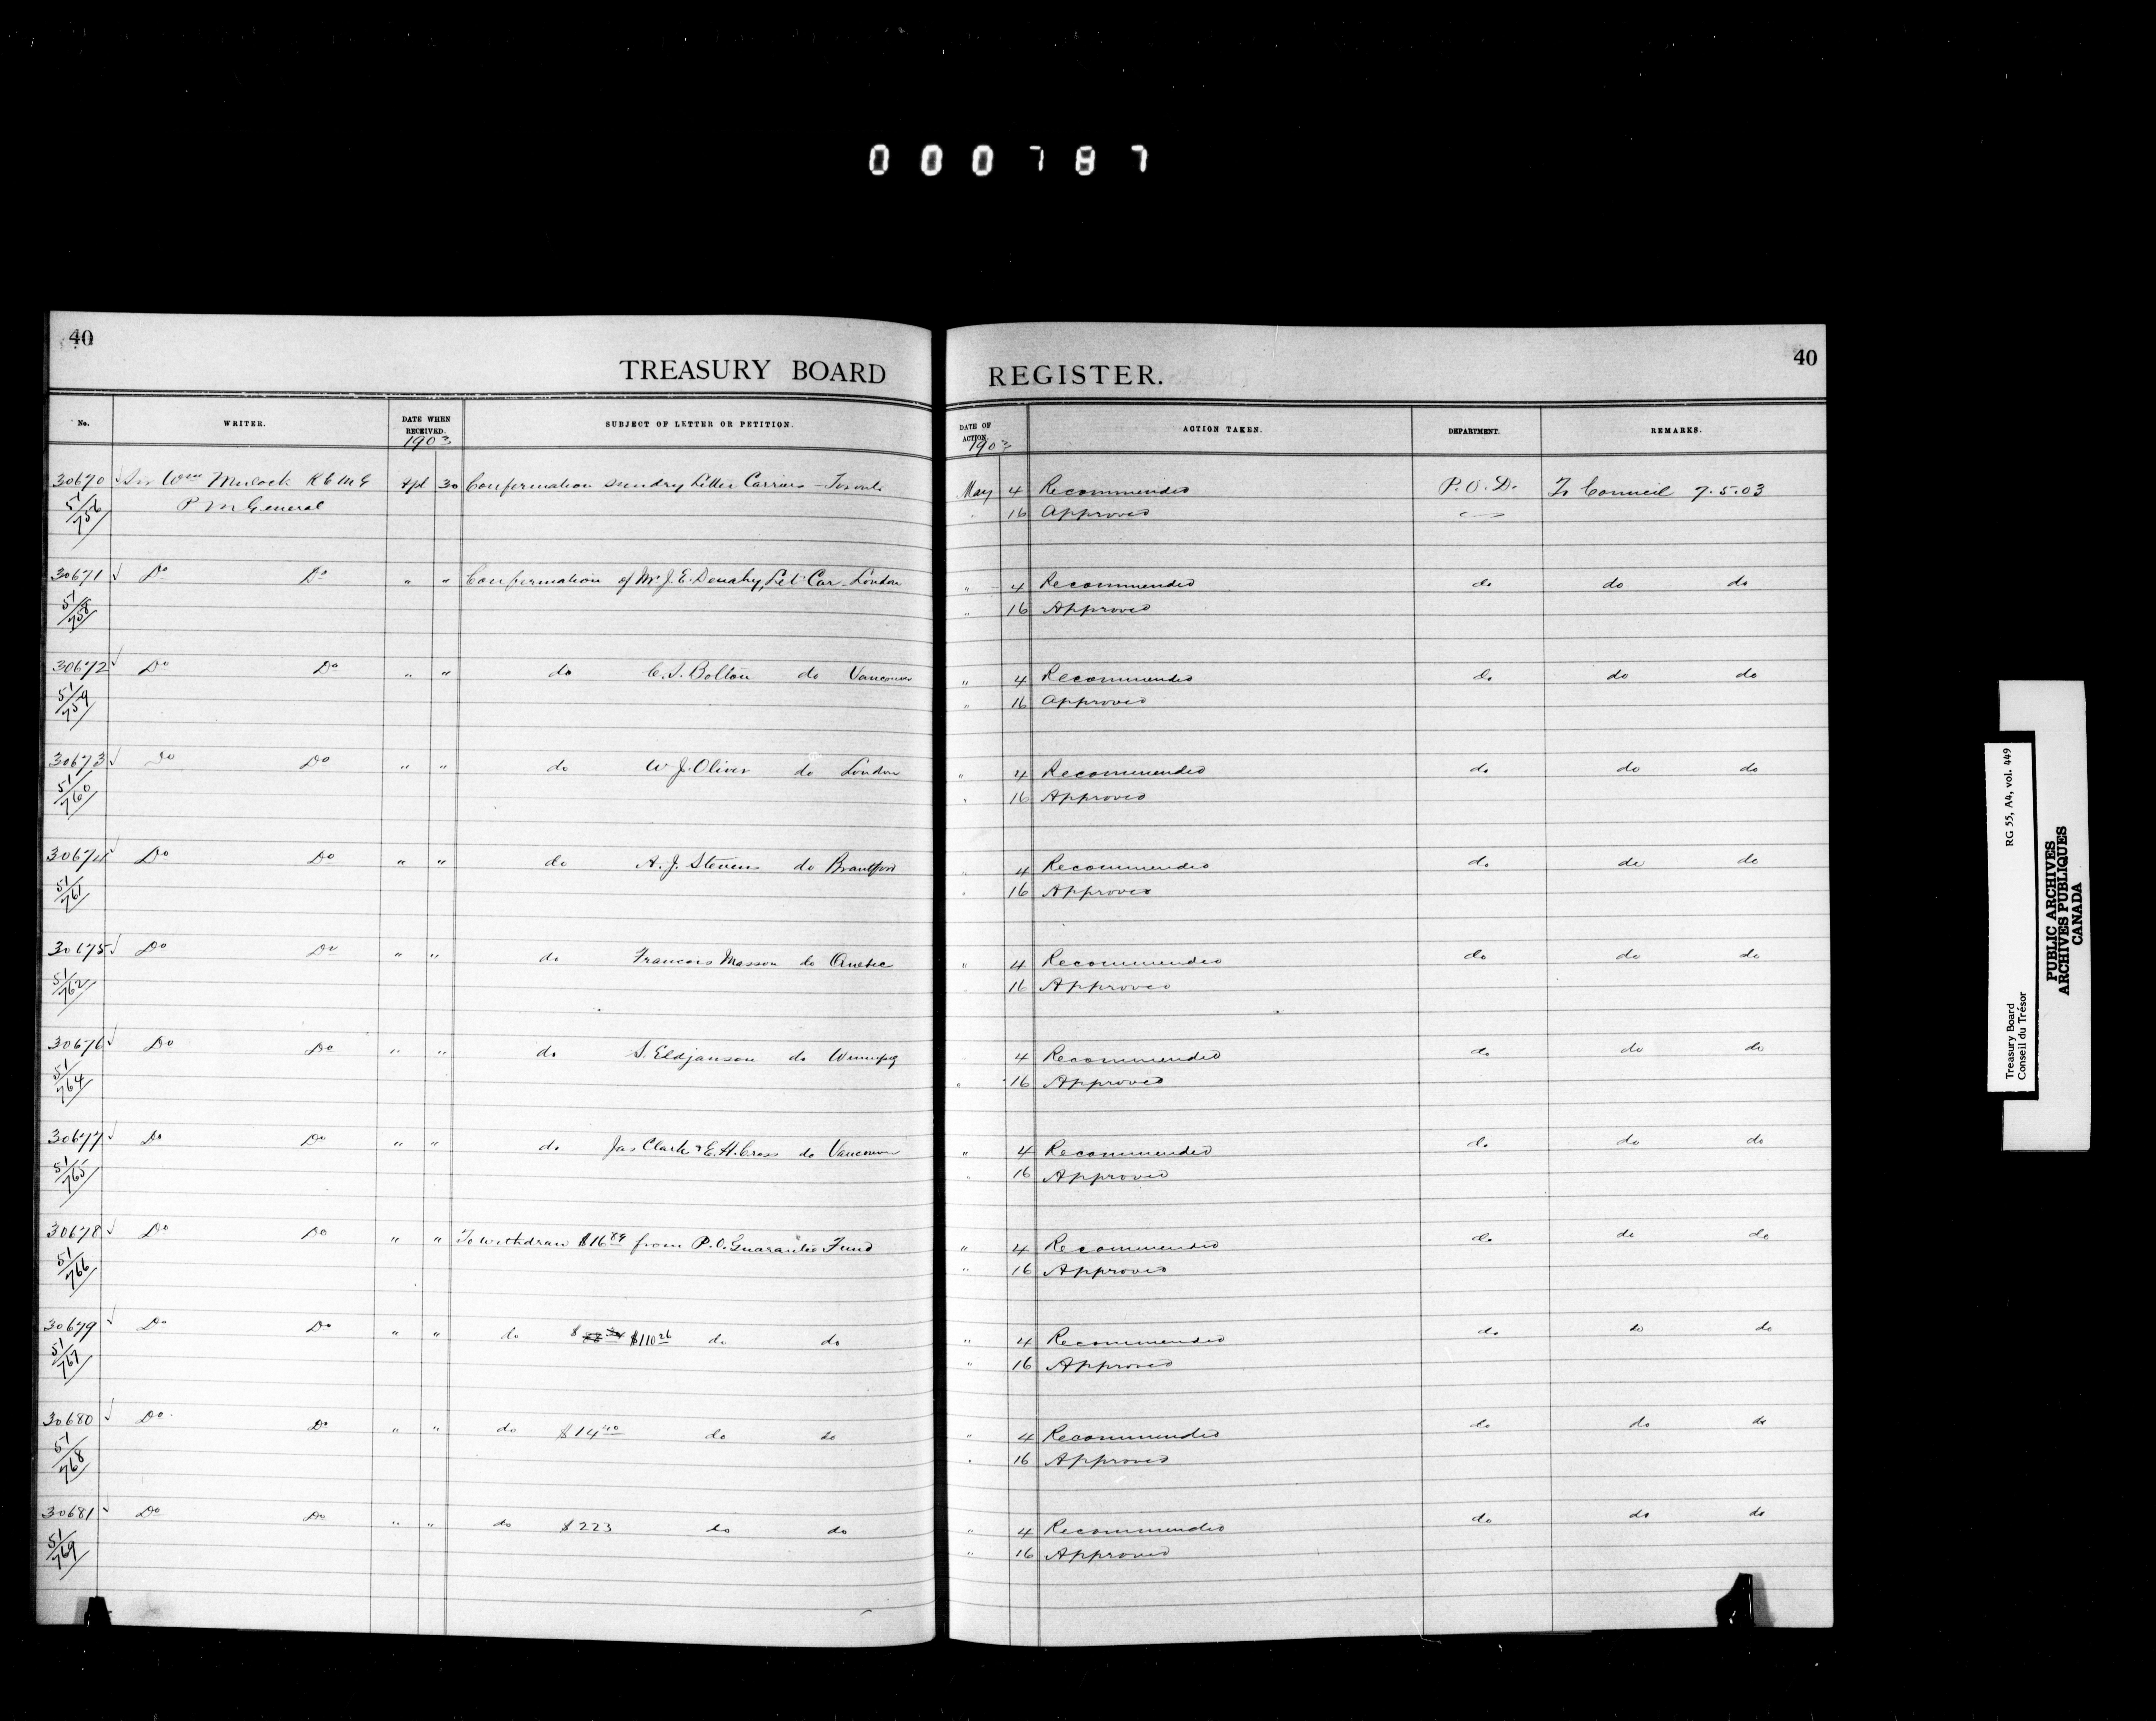 000787
40
TREASURY BOARD REGISTER.
40
No. WRITER. DATE WHEN RECEIVED. SUBJECT OF LETTER OR PETITION. DATE OF ACTION. ACTION TAKEN. DEPARTMENT. REMARKS.
1903 1903
30670 √ Sir Wm Mulock K C M G Apl 30 Confirmation sundry Letter Carriers - Toronto May 4 Recommended P.O.D. To Council 7.5.03
51/756 P M General 16 Approved
30671 √ Do Do " " Confirmation of Mr J. E. Denahy, Let. Car. London " 4 Recommended do do do
51/758 " 16 Approved
30672 √ Do Do " " do C. S. Bolton do Vancouver " 4 Recommended do do do
51/759 " 16 Approved
30673 √ Do Do " " do W J. Oliver do London " 4 Recommended do do do
51/760 " 16 Approved
30674 √ Do Do " " do A. J. Stevens do Brantford " 4 Recommended do do do
51/761 " 16 Approved
30675 √ Do Do " " do Francois Masson do Quebec " 4 Recommended do do do
51/762 16 Approved
30676 √ Do Do " " do S. Eldjanson do Winnipeg 4 Recommended do do do
51/764 " 16 Approved
30677 √ Do Do " " do Jas Clark & E. H. Cross do Vancouver " 4 Recommended do do do
51/765 " 16 Approved
30678 √ Do Do " " To withdraw $16 89 from P.O. Guarantee Fund " 4 Recommended do do do
51/766 " 16 Approved
30679 √ Do Do " " do $110 26 do do " 4 Recommended do do do
51/767 " 16 Approved
30680 √ Do. Do " " do $14 40 do do " 4 Recommended do do do
51/768 " 16 Approved
30681 √ Do Do " " do $223 do do " 4 Recommended do do do
51/769 " 16 Approved
Treasury Board RG 55, A4, vol. 449
Conseil du Trésor
PUBLIC ARCHIVES
ARCHIVES PUBLIQUES
CANADA